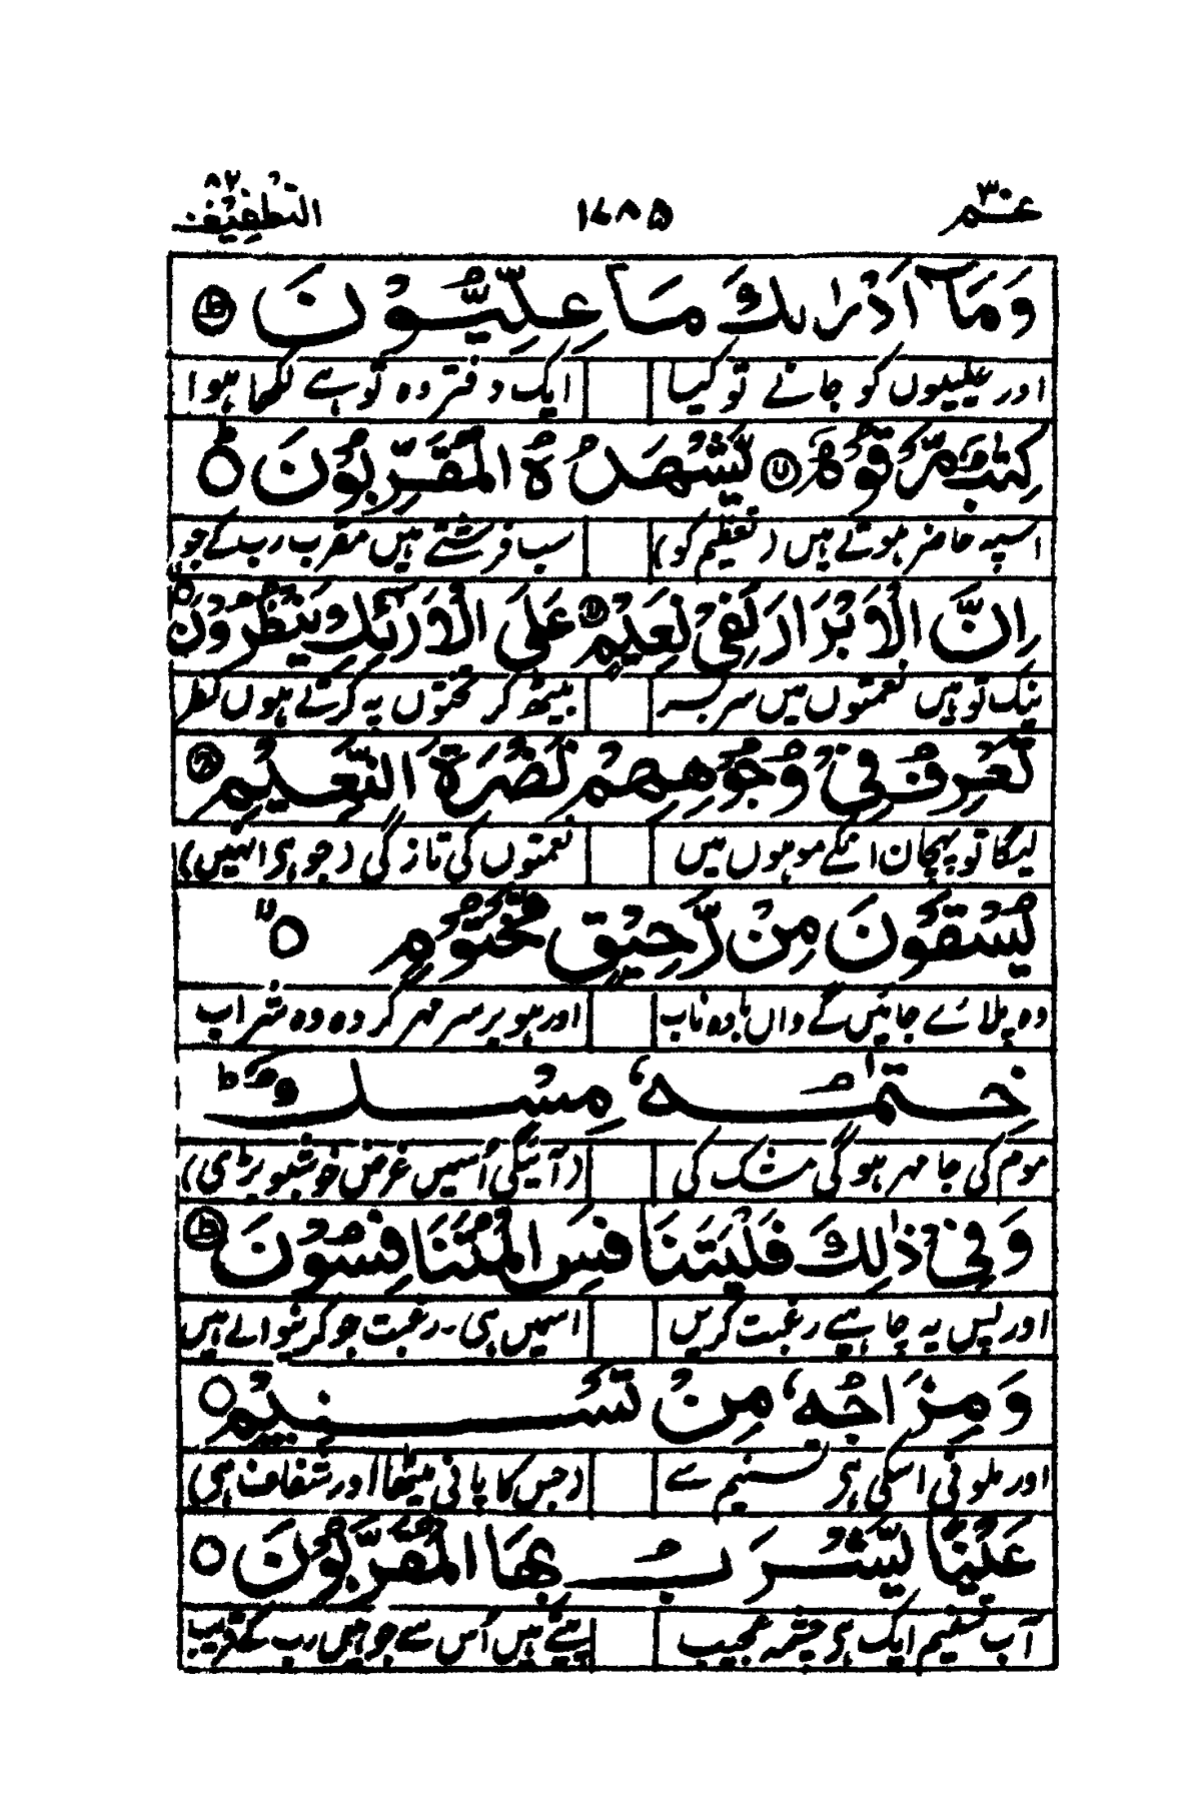 عم ٣٠ ١٤٨٥ التطفیف ٨٣
وَمَآ اَدْرٰىكَ مَا عِلِّيُّوْنَ ؕ
اور علیین کو جانے تو کیا ایک دفتر وہ تو ہے لکھا ہوا
كِتٰبٌ مَّرْقُوْمٌ ۙ يَّشْهَدُهُ الْمُقَرَّبُوْنَ ؕ
اسپہ حاضر ہوتے ہیں (تعظیم کو) سب فرشتے ہیں مقرب رب کے جو
اِنَّ الْاَبْرَارَ لَفِيْ نَعِيْمٍ ۙ عَلَى الْاَرَآئِكِ يَنْظُرُوْنَ ۙ
نیک تو ہیں نعمتوں میں سر بسر بیٹھ کر تختوں پہ کرتے ہوں نظر
تَعْرِفُ فِيْ وُجُوْهِهِمْ نَضْرَةَ النَّعِيْمِ ۚ
لیگا تو پہچان انکے موہوں میں نعمتوں کی تازگی (جو ہی انہیں)
يُسْقَوْنَ مِنْ رَّحِيْقٍ مَّخْتُوْمٍ ۙ
وہ پلائے جائیں گے واں بادہ ناب اور ہو بر سر مہر کردہ وہ شراب
خِتٰمُهٗ مِسْكٌ ؕ
موم کی جا مہر ہوگی مشک کی (آئیگی اُسمیں غرض خوشبو بڑی)
وَفِيْ ذٰلِكَ فَلْيَتَنَافَسِ الْمُتَنَافِسُوْنَ ؕ
اور پس یہ چاہیے رغبت کریں اسمیں ہی ۔ رغبت جو کرنیوالے ہیں
وَمِزَاجُهٗ مِنْ تَسْنِيْمٍ ۙ
اور ملونی اسکی ہی تسنیم سے (جس کا پانی میٹھا اور شفاف ہی)
عَيْنًا يَّشْرَبُ بِهَا الْمُقَرَّبُوْنَ ؕ
آب تسنیم ایک ہی چشمہ عجیب پیتے ہیں اُس سے جو ہیں رب کے قریب